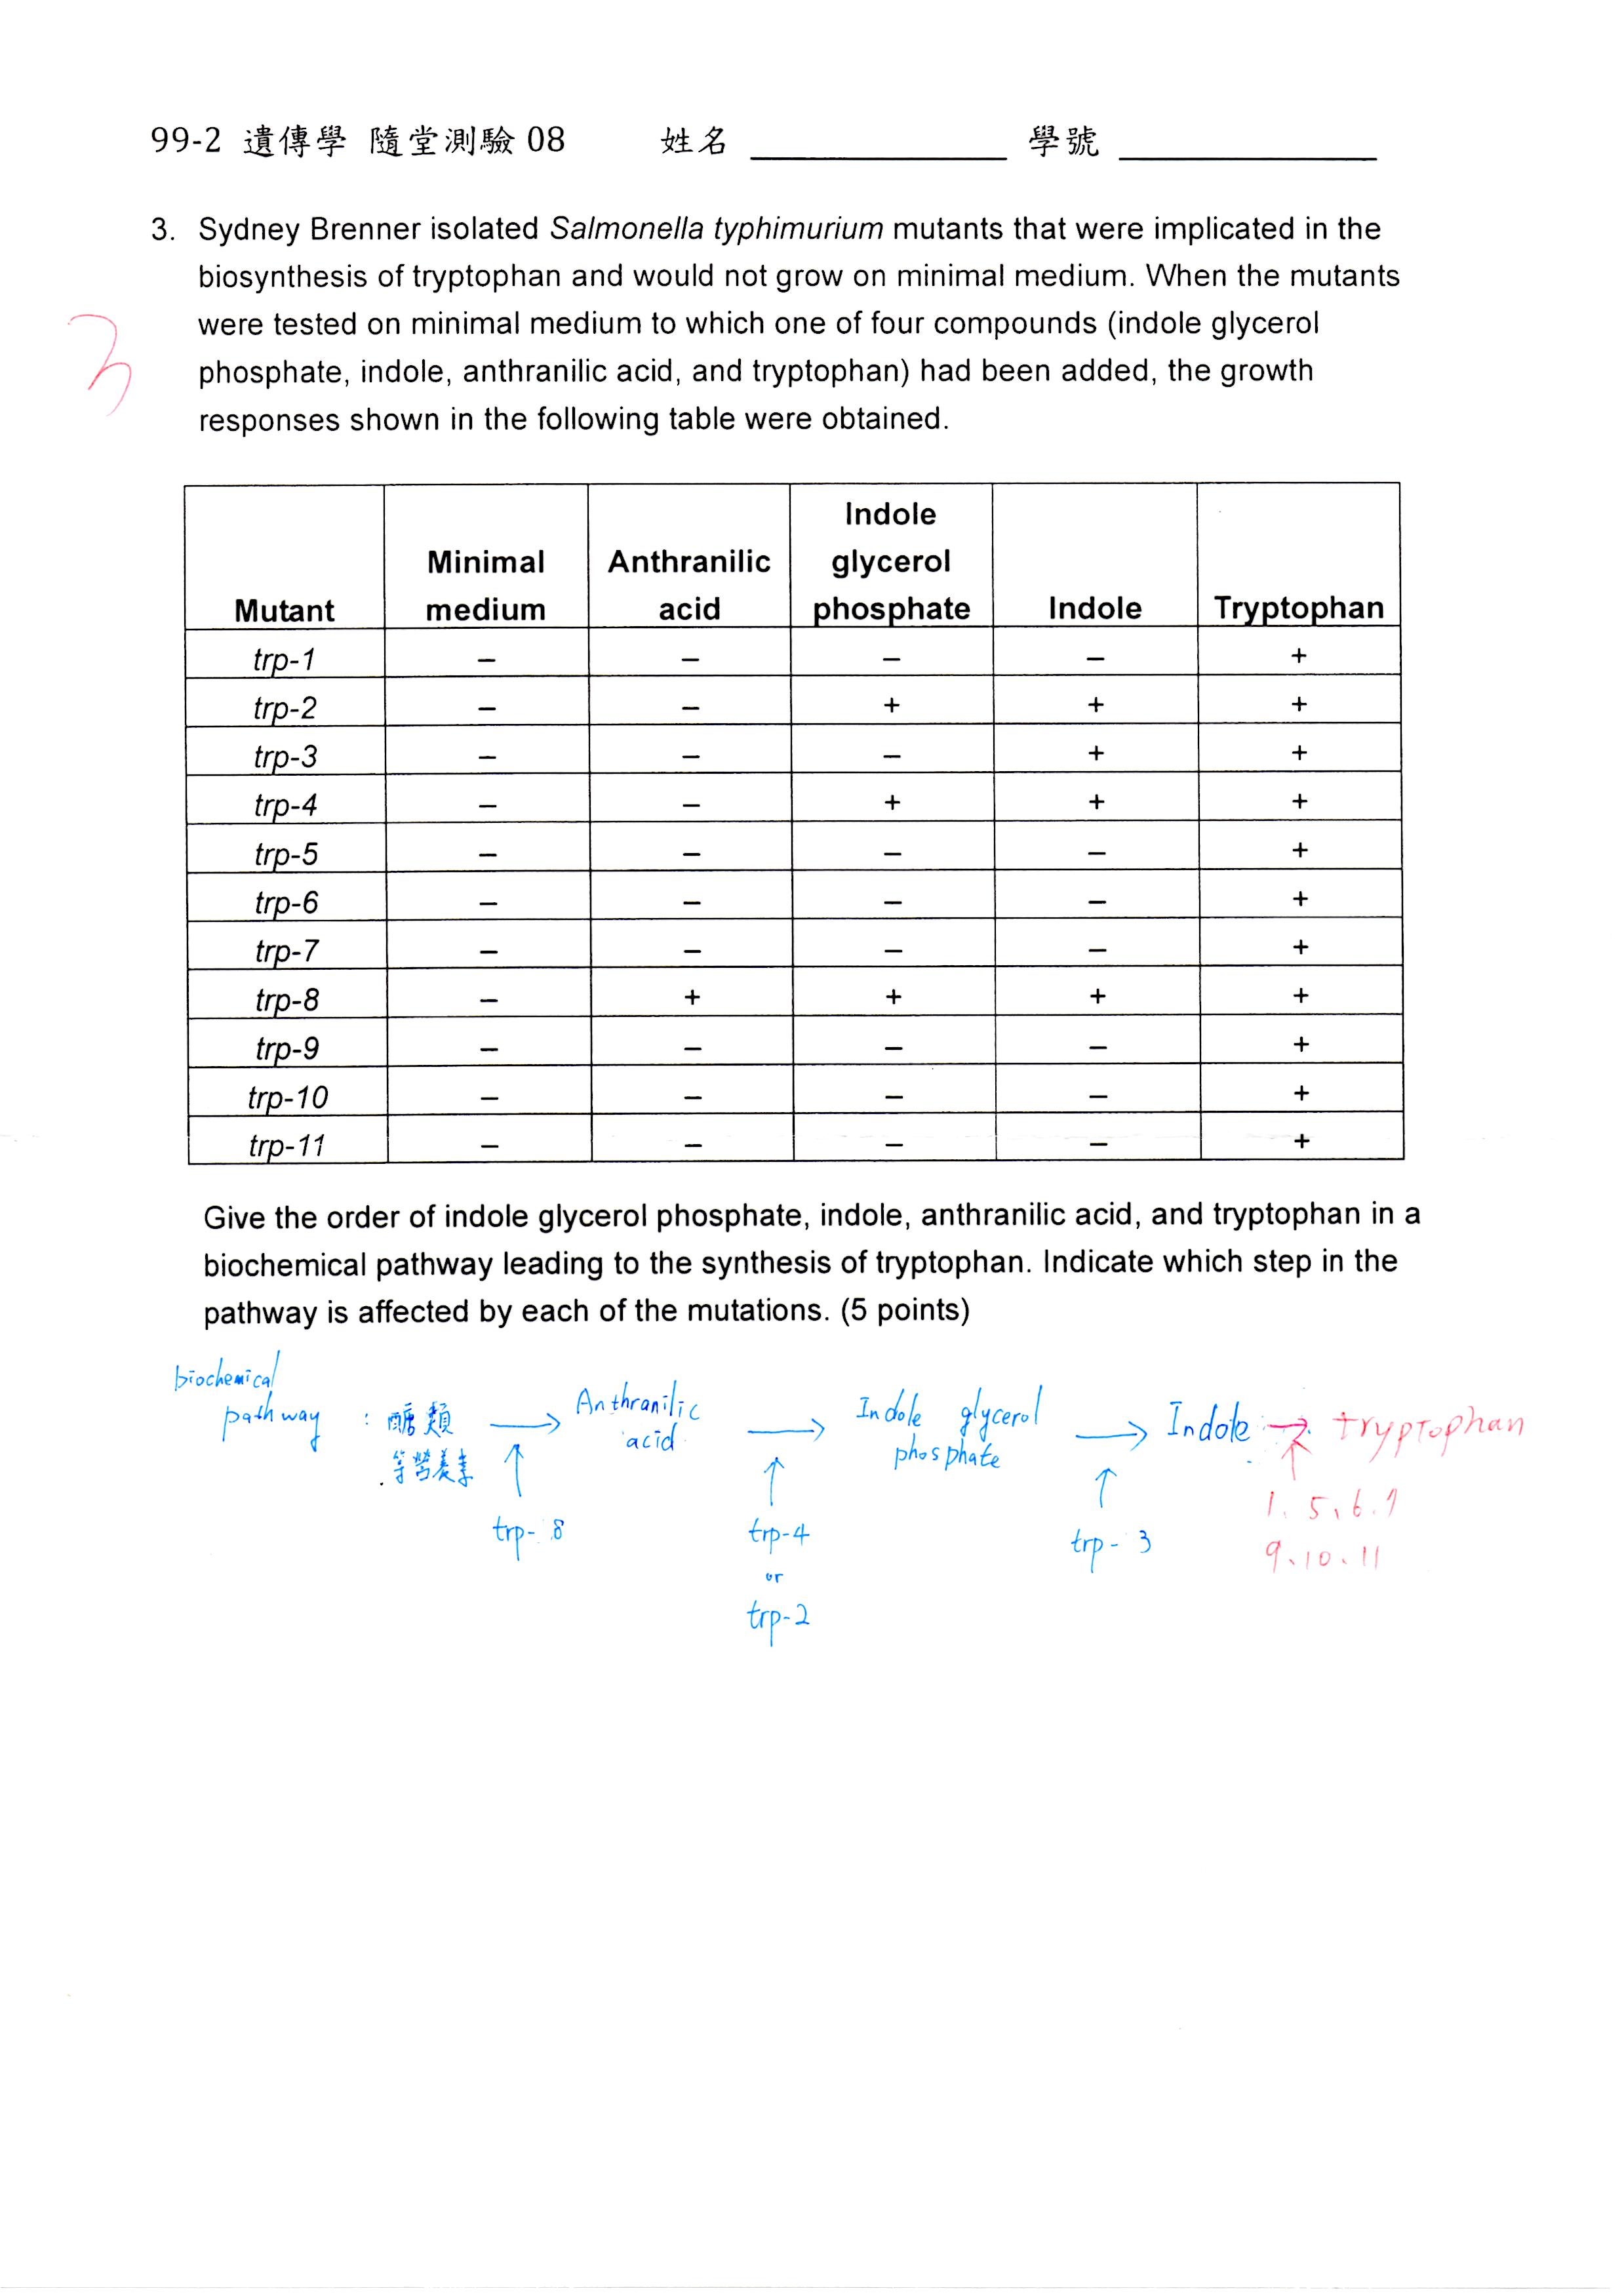 99-2 遺傳學 隨堂測驗 08 姓名 ＿＿＿＿＿＿ 學號 ＿＿＿＿＿＿
3. Sydney Brenner isolated Salmonella typhimurium mutants that were implicated in the
biosynthesis of tryptophan and would not grow on minimal medium. When the mutants
were tested on minimal medium to which one of four compounds (indole glycerol
phosphate, indole, anthranilic acid, and tryptophan) had been added, the growth
responses shown in the following table were obtained.
3
Mutant Minimal medium Anthranilic acid Indole glycerol phosphate Indole Tryptophan
trp-1 – – – – +
trp-2 – – + + +
trp-3 – – – + +
trp-4 – – + + +
trp-5 – – – – +
trp-6 – – – – +
trp-7 – – – – +
trp-8 – + + + +
trp-9 – – – – +
trp-10 – – – – +
trp-11 – – – – +
Give the order of indole glycerol phosphate, indole, anthranilic acid, and tryptophan in a
biochemical pathway leading to the synthesis of tryptophan. Indicate which step in the
pathway is affected by each of the mutations. (5 points)
biochemical
pathway : 醣類 → Anthranilic → Indole glycerol → Indole → tryptophan
等營養素 acid phosphate
1、5、6、7
trp-8 trp-4 trp-3 9、10、11
or
trp-2